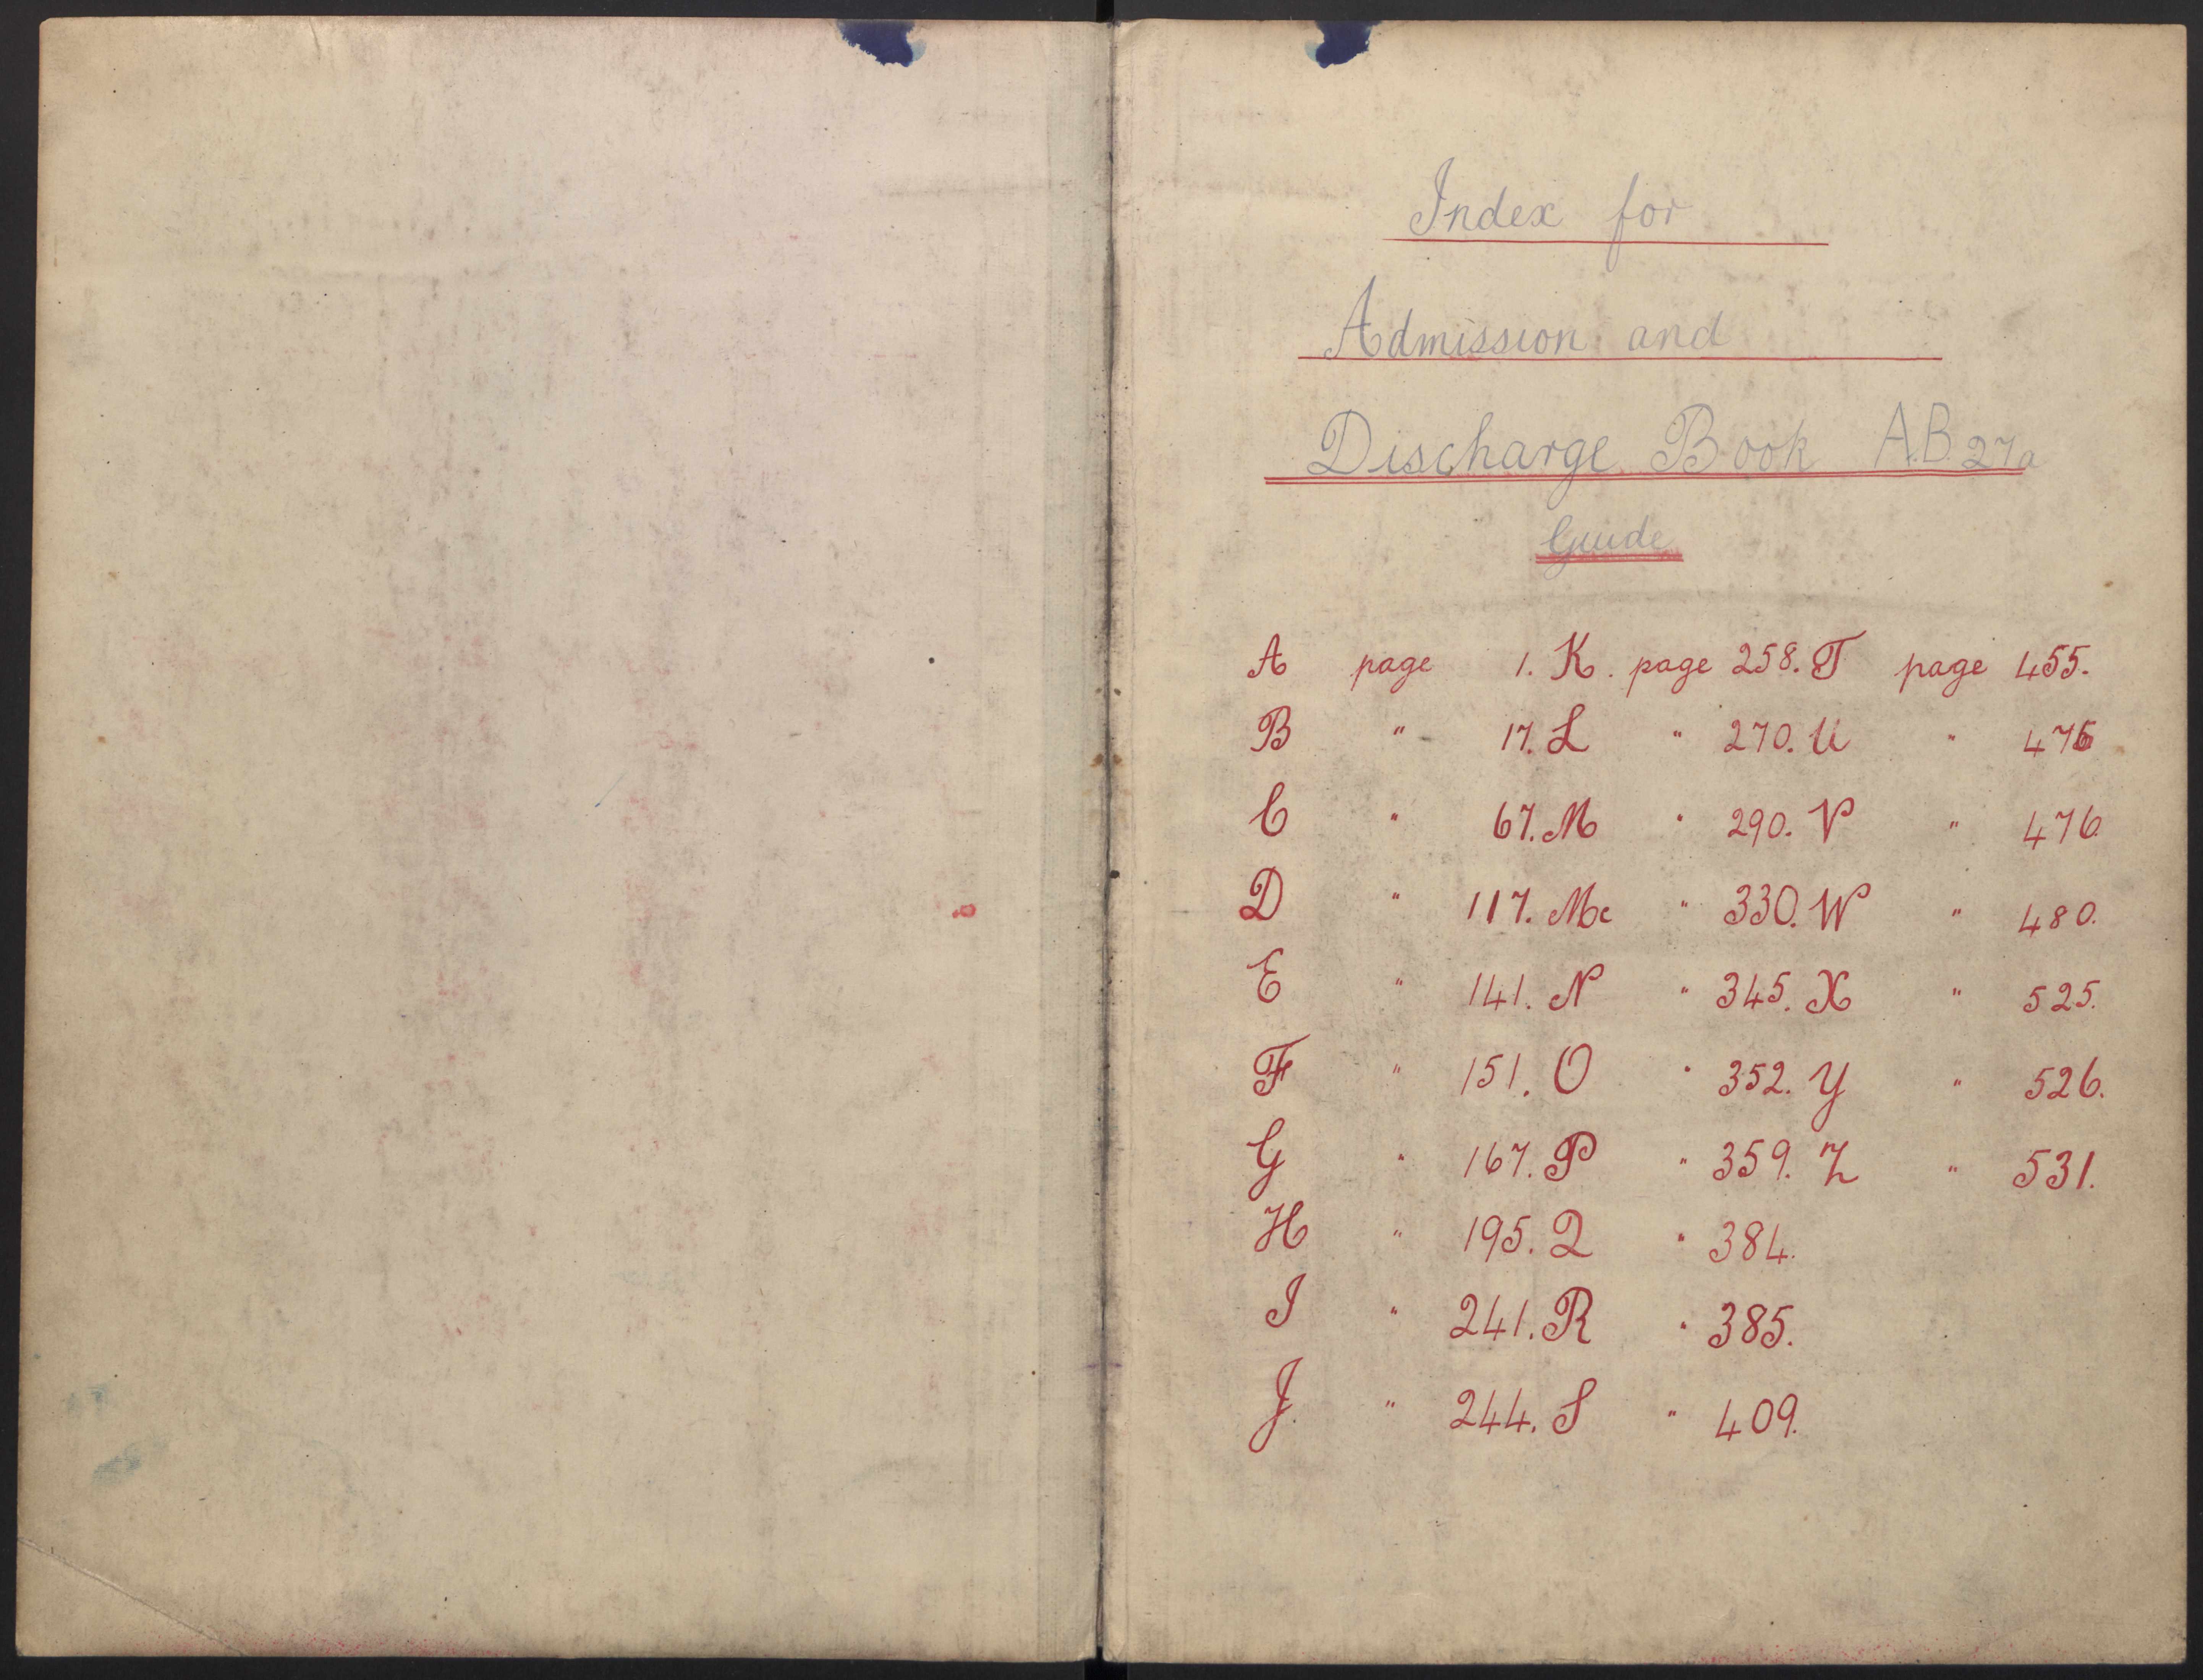 Index for
Admission and
Discharge Book A.B. 27a
Guide
A page 1. K. page 258. T page 455.
B " 17. L " 270. U " 475
C " 67. M " 290. V " 476.
D " 117. Mc " 330. W " 480.
E " 141. N " 345. X " 525.
F " 151. O " 352. Y " 526.
G " 167. P " 359. Z " 531.
H " 195. Q " 384.
I " 241. R " 385.
J " 244. S " 409.